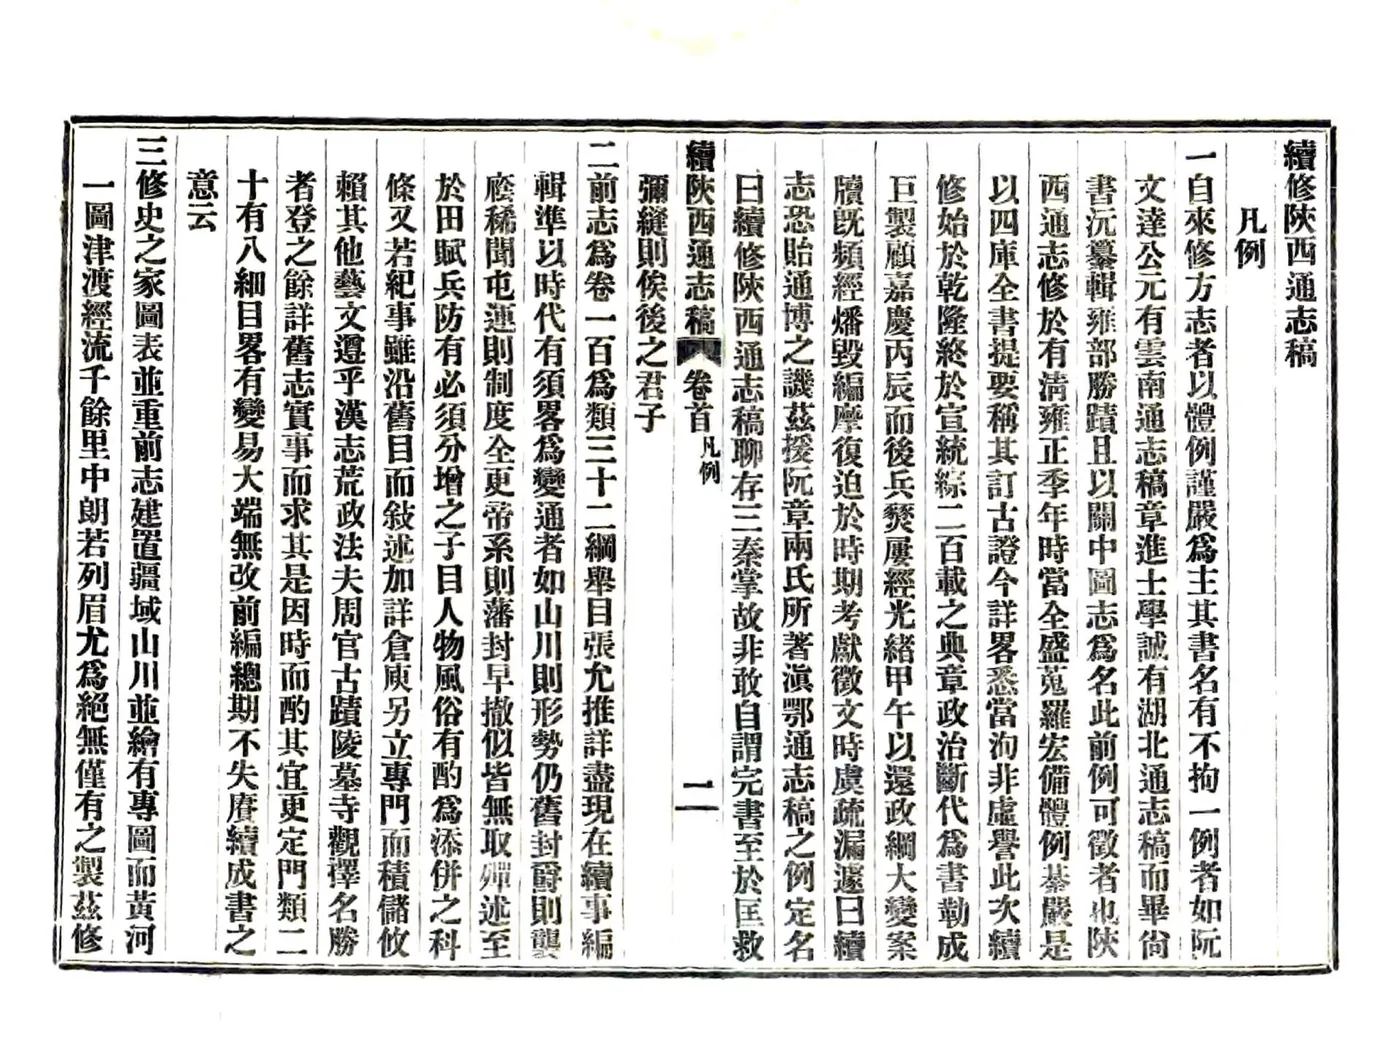 續修陝西通志稿
凡例
一自來修方志者以體例謹嚴爲主其書名有不拘一例者如阮
文達公元有雲南通志稿章進士學誠有湖北通志稿而畢尙
書沅纂輯雍部勝蹟且以關中圖志爲名此前例可徵者也陝
西通志修於有淸雍正季年時當全盛蒐羅宏備體例綦嚴是
以四庫全書提要稱其訂古證今詳畧悉當洵非虛譽此次續
修始於乾隆終於宣統綜二百載之典章政治斷代爲書勒成
巨製顧嘉慶丙辰而後兵燹屢經光緒甲午以還政綱大變案
牘旣頻經燔毀編摩復迫於時期考獻徵文時虞疏漏遽曰續
志恐貽通博之譏茲援阮章兩氏所著滇鄂通志稿之例定名
曰續修陝西通志稿聊存三秦掌故非敢自謂完書至於匡救
續陝西通志稿 卷首凡例 二
彌縫則俟後之君子
二前志爲卷一百爲類三十二綱舉目張允推詳盡現在續事編
輯準以時代有須畧爲變通者如山川則形勢仍舊封爵則襲
廕稀聞屯運則制度全更帝系則藩封早撤似皆無取殫述至
於田賦兵防有必須分增之子目人物風俗有酌爲添併之科
條又若紀事雖沿舊目而敍述加詳倉庾另立專門而積儲攸
賴其他藝文遵乎漢志荒政法夫周官古蹟陵墓寺觀擇名勝
者登之餘詳舊志實事而求其是因時而酌其宜更定門類二
十有八細目畧有變易大端無改前編總期不失賡續成書之
意云
三修史之家圖表並重前志建置疆域山川並繪有專圖而黃河
一圖津渡經流千餘里中朗若列眉尤爲絕無僅有之製茲修